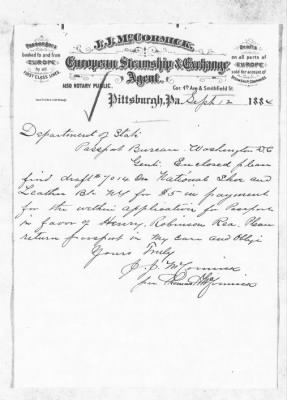 Passengers booked to and from EUROPE by all FIRST CLASS LINES
J. J. McCORMICK,
European Steamship & Exchange
Agent.
Drafts on all parts of EUROPE sold for account of
ALSO NOTARY PUBLIC.
Cor 4th Ave & Smithfield St.
Pittsburgh, Pa. Sept 12 1884
Department of State
Passport Bureau Washington D.C
Gents. Enclosed please
find draft # 7014 on National Shoe and
Leather Bk. NY for $5 in payment
for the within application for Passport
in favor of Henry Robinson Rea. Please
return passport in my care and oblige
Yours Truly
J. J. McCormick
per McCormick